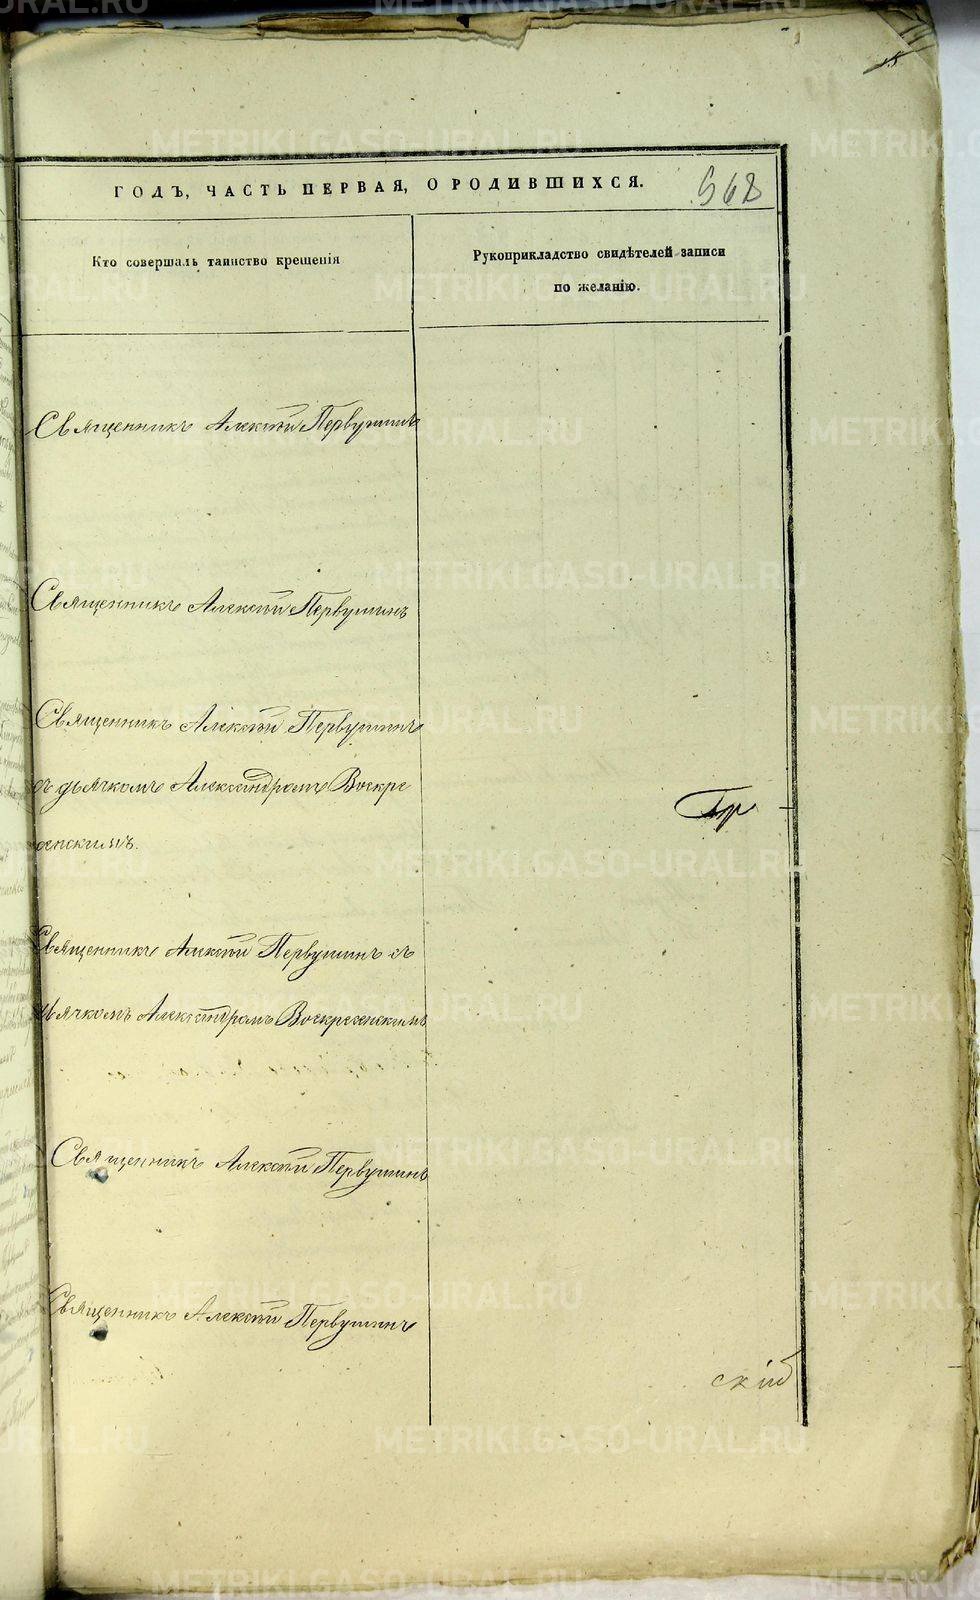 ГОДЪ, ЧАСТЬ ПЕРВАЯ, О РОДИВШИХСЯ.
568
Кто совершалъ таинство крещенія
Рукоприкладство свидѣтелей записи
по желанію.
Священникъ Алексѣй Первушинъ
Священникъ Алексѣй Первушинъ
Священникъ Алексѣй Первушинъ
съ дьячкомъ Александромъ Воскре
сенскимъ.
Священникъ Алексѣй Первушинъ съ
дьячкомъ Александромъ Воскресенскимъ
Священникъ Алексѣй Первушинъ
Священникъ Алексѣй Первушинъ
METRIKI.GASO-URAL.RU